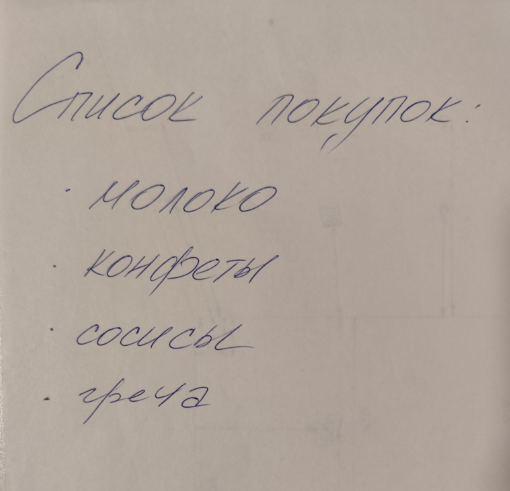 Список покупок:
· молоко
· конфеты
· сосисы
· греча